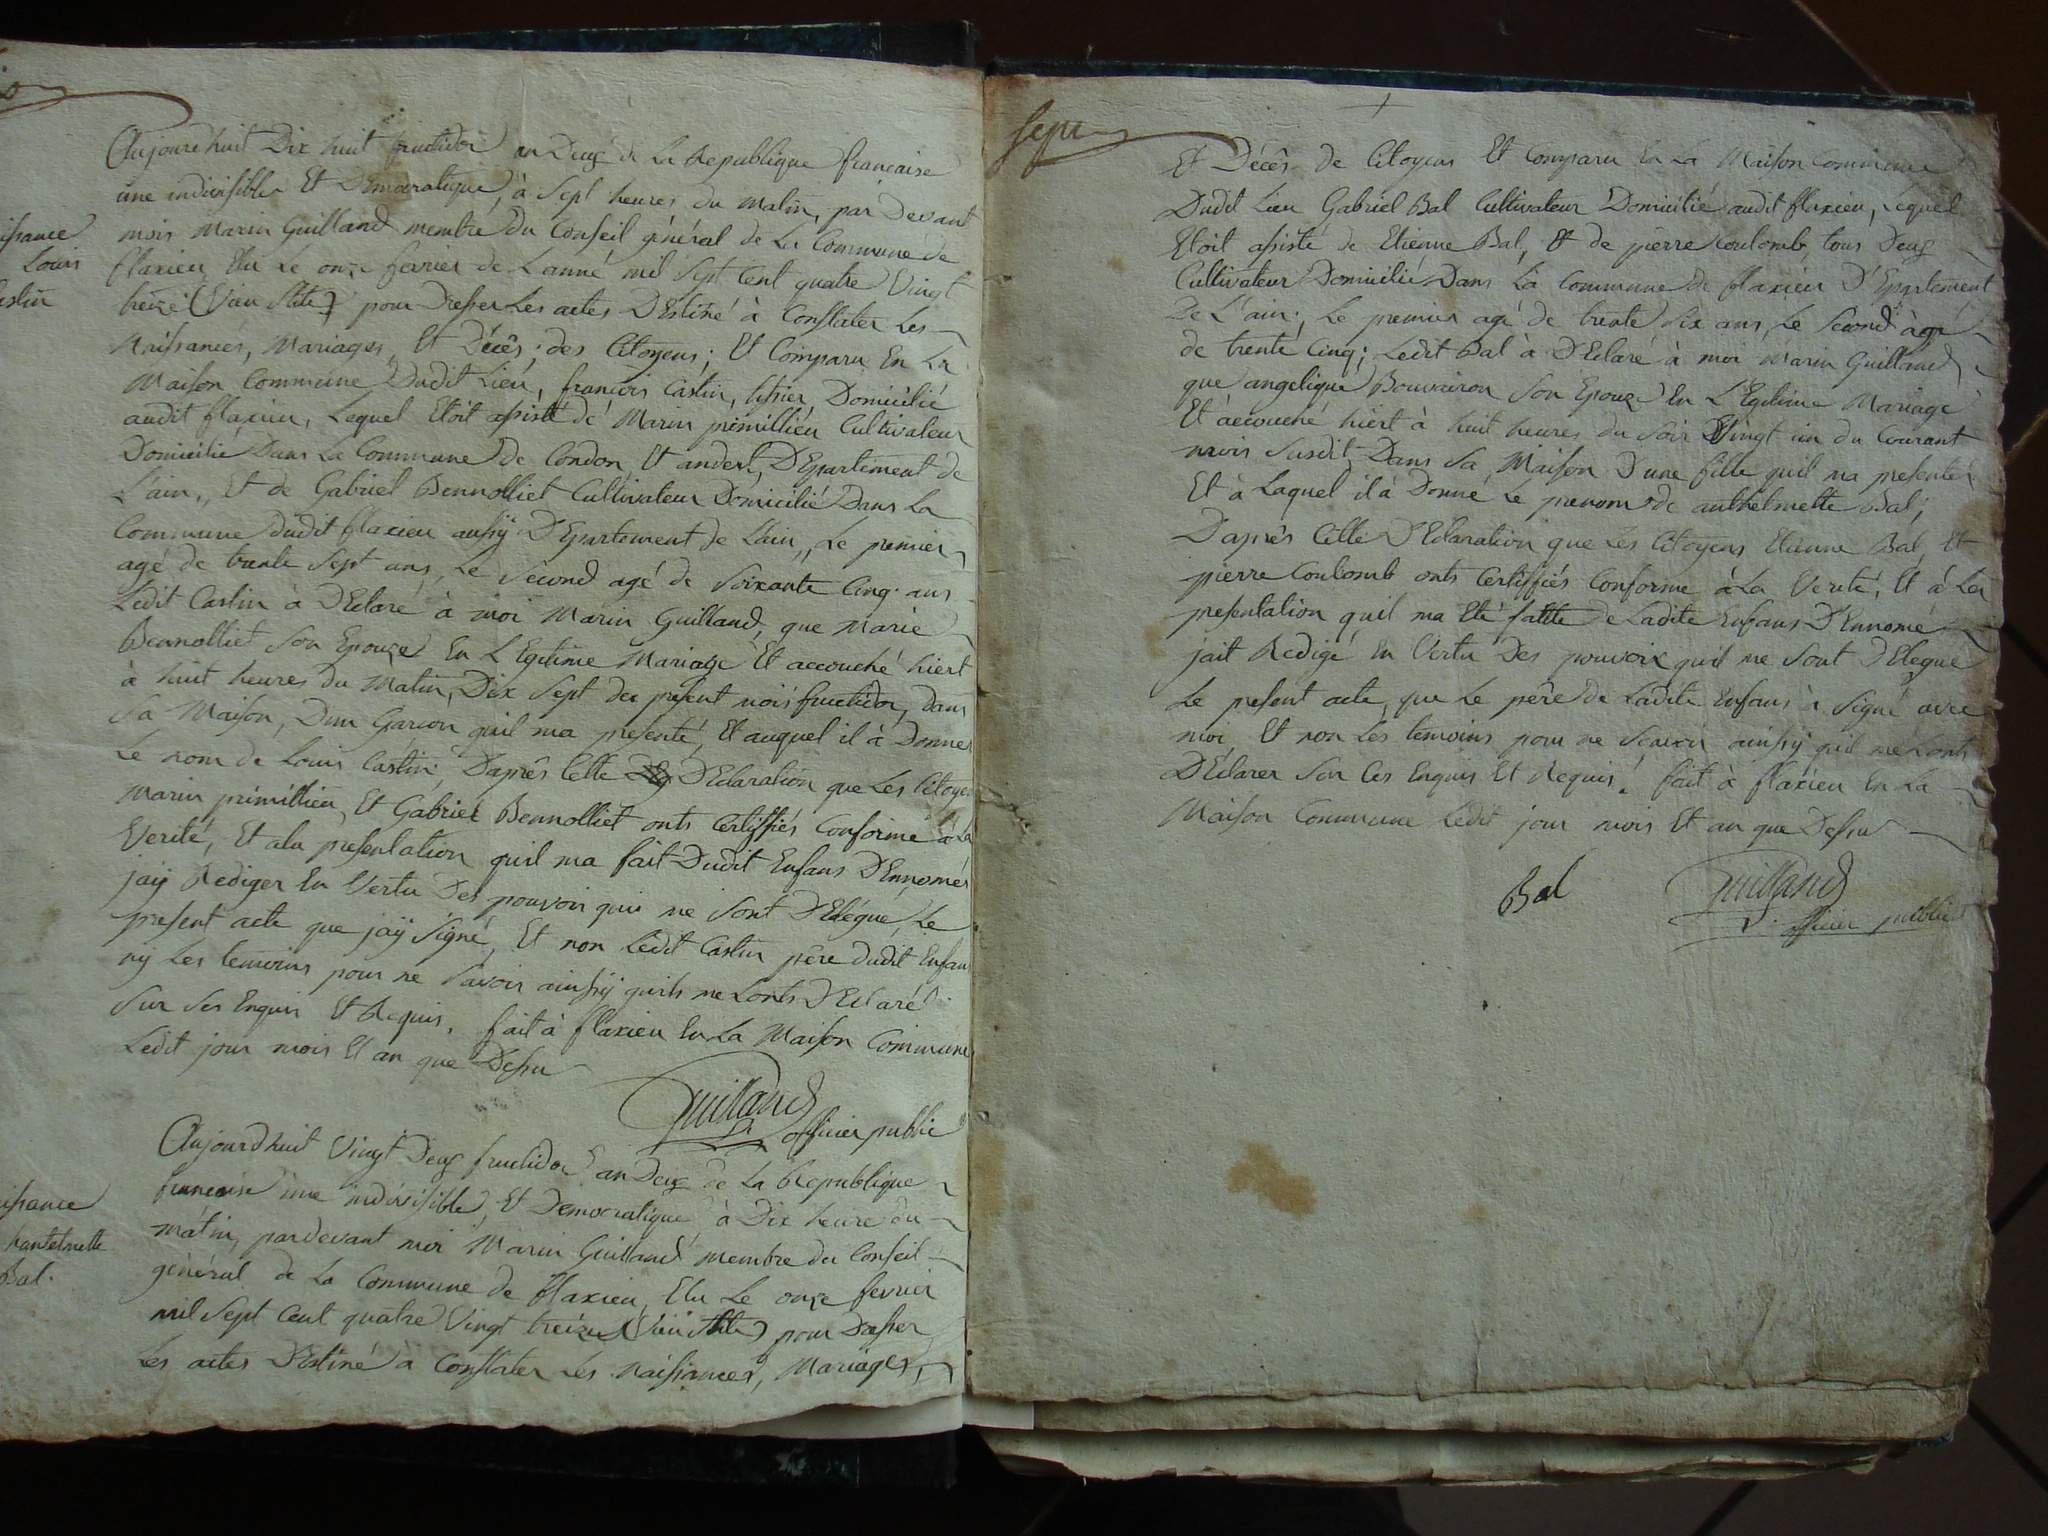 Aujourdhuit Dix huit fructidor an Deux de La Republique francaise
une indivisible Et Democratique, à Sept heures du matin, par Devant
mois Marin Guilland membre du Conseil général de La Commune de
flaxieu Elu Le onze fevrier de Lanné mil Sept Cent quatre Vingt
treize (Vieu Stile) pour Dresser Les actes DEstiné à Constater Les
Naissances, Mariages, Et Décês; des Citoyens; Et Comparu En La
Maison Commune Dudit Lieu, francois Castin, tissier Domicilié
audit flaxieu, Lequel Etoit assisté de Marin primillieu Cultivateur
Domicilie Dans La Commune de Condon Et andert, DEpartement de
L'ain,, Et de Gabriel Bennolliet Cultivateur Domicilié Dans La
Commune dudit flaxieu aussy DEpartement de L'ain,, Le premier
agé de trente Sept ans, Le Second agé de Soixante Cinq ans
Ledit Castin à DEclaré à moi Marin Guilland, que Marie
Bennolliet Son Epouze En LEgitime Mariage Et accouché hiert
à huit heures du Matin, Dix Sept du present mois fructidor, dans
Sa Maison, Dun Garcon quil ma presenté, Et auquel il à Donné
Le nom de Louis Castin; Daprês Cette DEclaration que Les Citoyen
Marin primillieu, Et Gabriel Bennolliet onts Certiffiés Conforme à La
Verité, Et ala presentation quil ma fait Dudit Enfans DEnnomés
jaij Rediger En Vertu Des pouvoir qui me Sont DElégué, Le
present acte que jaÿ Signé, Et non Ledit Castin pere dudit Enfan
ny Les temoins pour ne Savoir ainssy quils me Lonts DEclaré
Sur Ses Enquis Et Requis, fait à flaxieu En La Maison Commune
Ledit jour mois Et an que Dessu
Guilland
officier public
Aujourdhuit Vingt Deux fructidor an Deux de La Republique
francaise une indivisible, Et Democratique à Dix heure du
matin, pardevant moi Marin Guilland membre du Conseil
général de La Commune de flaxieu, Elu Le onze fevrier
mil Sept Cent quatre Vingt treize (Vieu Stile) pour Dresser
Les actes DEstiné a Constater Les Naissances, Mariages,
issance
Louis
astin
issance
hantelmette
Bal.
Sept
Et Décês de Citoyens Et Comparu En La Maison Commune
Dudit Lieu Gabriel Bal Cultivateur Domicilié audit flaxieu, Lequel
Etoit assisté de Etienne Bal, Et de pierre Coulomb, tous Deux
Cultivateur Domicilié Dans La Commune de flaxieu DEpartement
De L'ain; Le premier agé de trente Six ans, Le Second àgé
de trente Cinq; Ledit Bal à DEclaré à moi Marin Guilland,
que angelique Bouvairon Son Epouze En LEgitime Mariage
Et accouché hiert à huit heures du Soir Vingt un du Courant
mois Susdit Dans Sa Maison Dune fille quil ma presenté
Et à Laquel il à Donné Le prenom de anthelmette Bal;
Daprês Cette DEclaration que Les Citoyens Etienne Bal, Et
pierre Coulomb onts Certiffiés Conforme à La Verité, Et à La
presentation quil ma Eté faitte de Ladite Enfans DEnnomé
jait Redigé En Vertu Des pouvoir quil me Sont DElegué
Le present acte, que Le père de Ladite Enfans à Signé avec
moi, Et non Les temoins pour ne Scavoir ainssy quil me Lonts
DEclarer Sur Ces Enquis Et Requis. fait à flaxieu En La
Maison Commune Ledit jour mois Et an que Dessu
Bal
Guilland
officier public